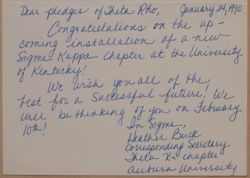 Dear pledges of Theta Rho, January 24, 1990
Congratulations on the up-
coming installation of a new
Sigma Kappa chapter at the University
of Kentucky!
We wish you all of the
best for a successful future! We
will be thinking of you on February
10th!
In Sigma,
Heather Buck
Corresponding Secretary
Theta X chapter
Auburn University